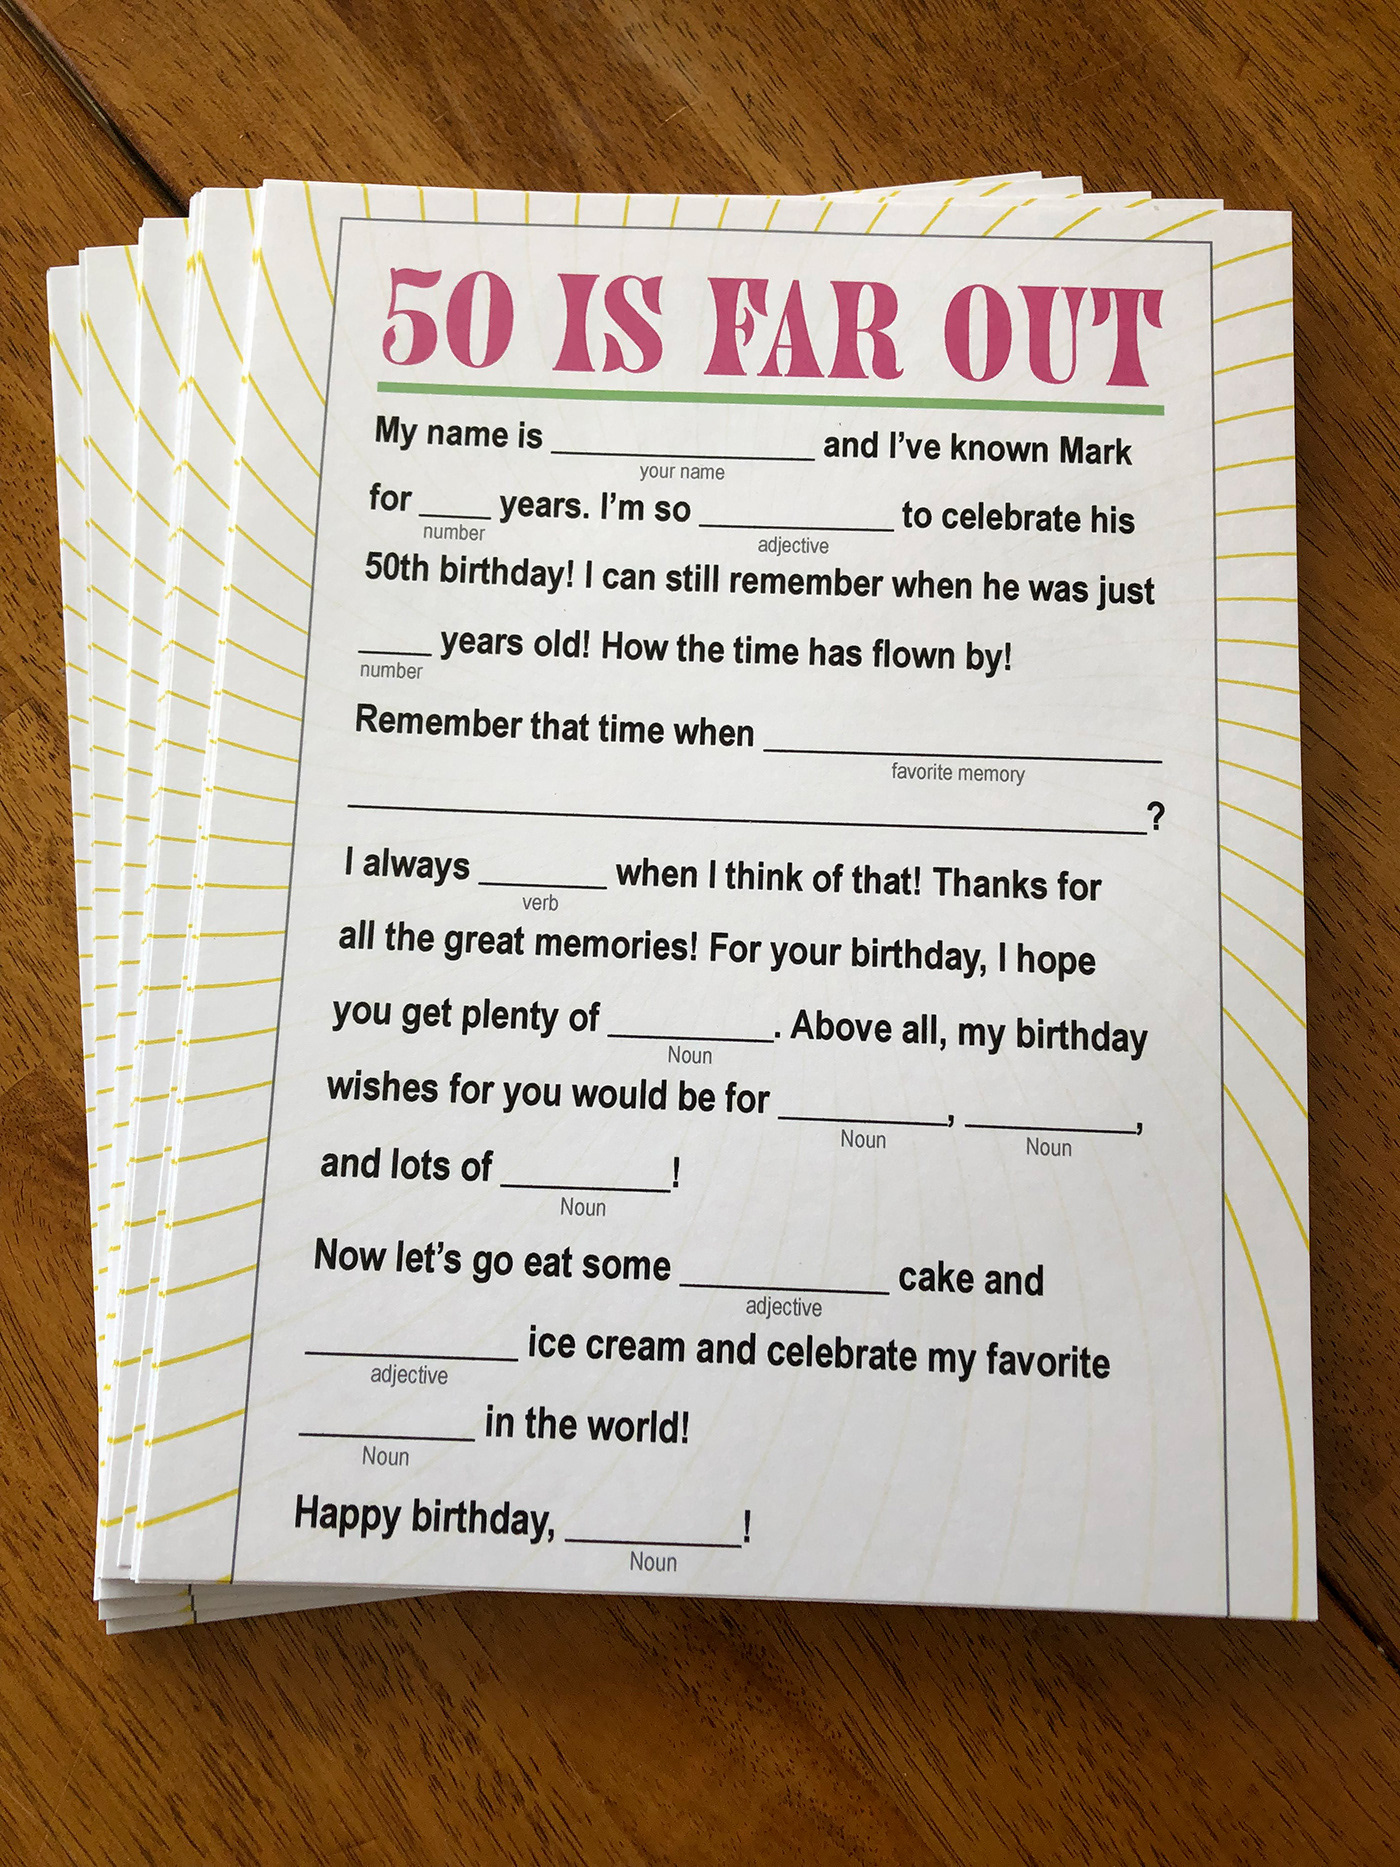 50 IS FAR OUT
My name is ____________ and I've known Mark
your name
for ____ years. I'm so __________ to celebrate his
number adjective
50th birthday! I can still remember when he was just
____ years old! How the time has flown by!
number
Remember that time when ____________________
favorite memory
________________________________________?
I always _______ when I think of that! Thanks for
verb
all the great memories! For your birthday, I hope
you get plenty of _________. Above all, my birthday
Noun
wishes for you would be for _________, _________,
Noun Noun
and lots of _________!
Noun
Now let's go eat some ___________ cake and
adjective
___________ ice cream and celebrate my favorite
adjective
_________ in the world!
Noun
Happy birthday, _________!
Noun